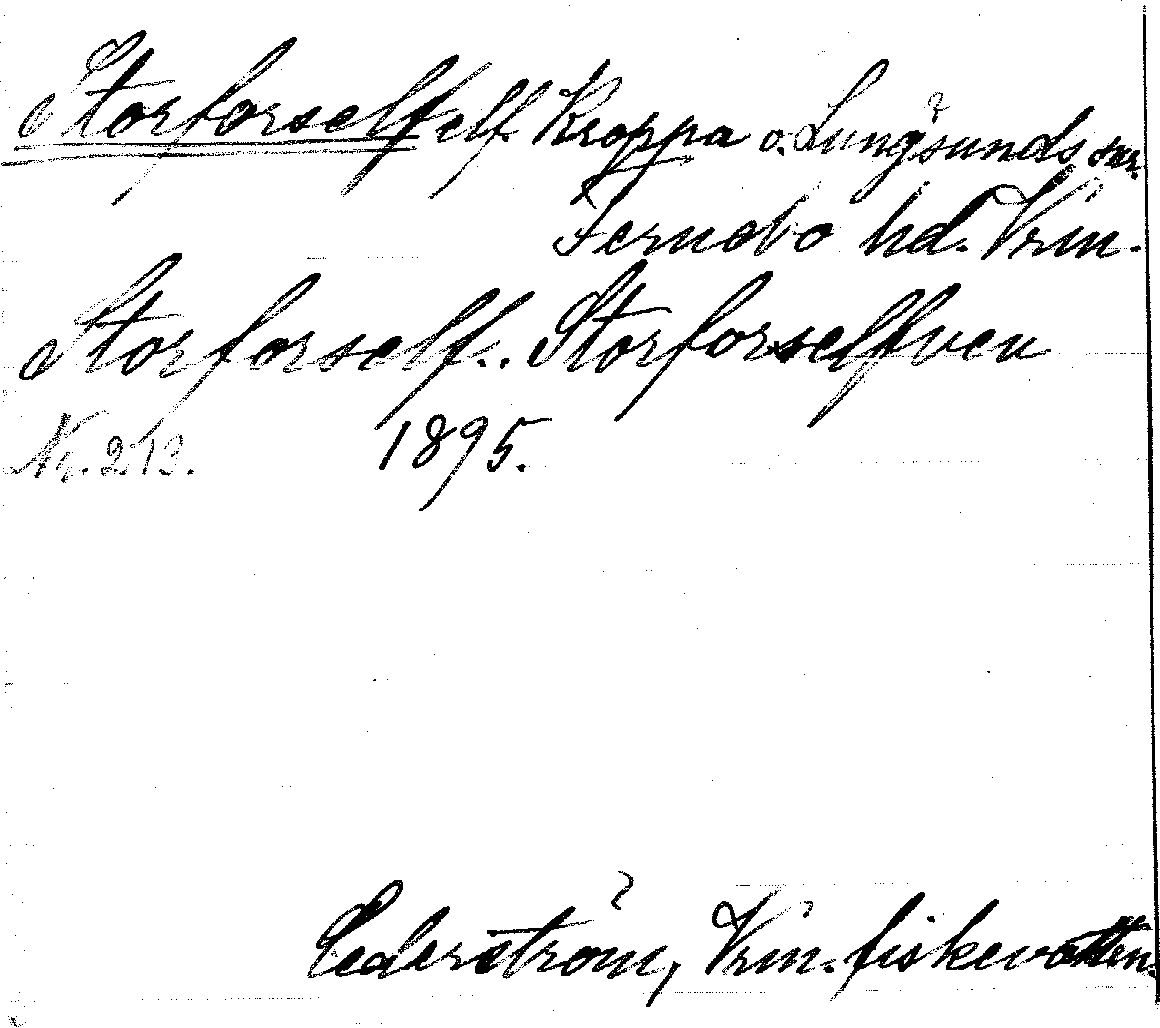 Storforself elf. Kroppa o. Lungsunds snr.
Fernebo hd. Vrm.
Storforself.. Storforselfven
Nr. 213. 1895.
Cederström, Vrm. fiskevatten.